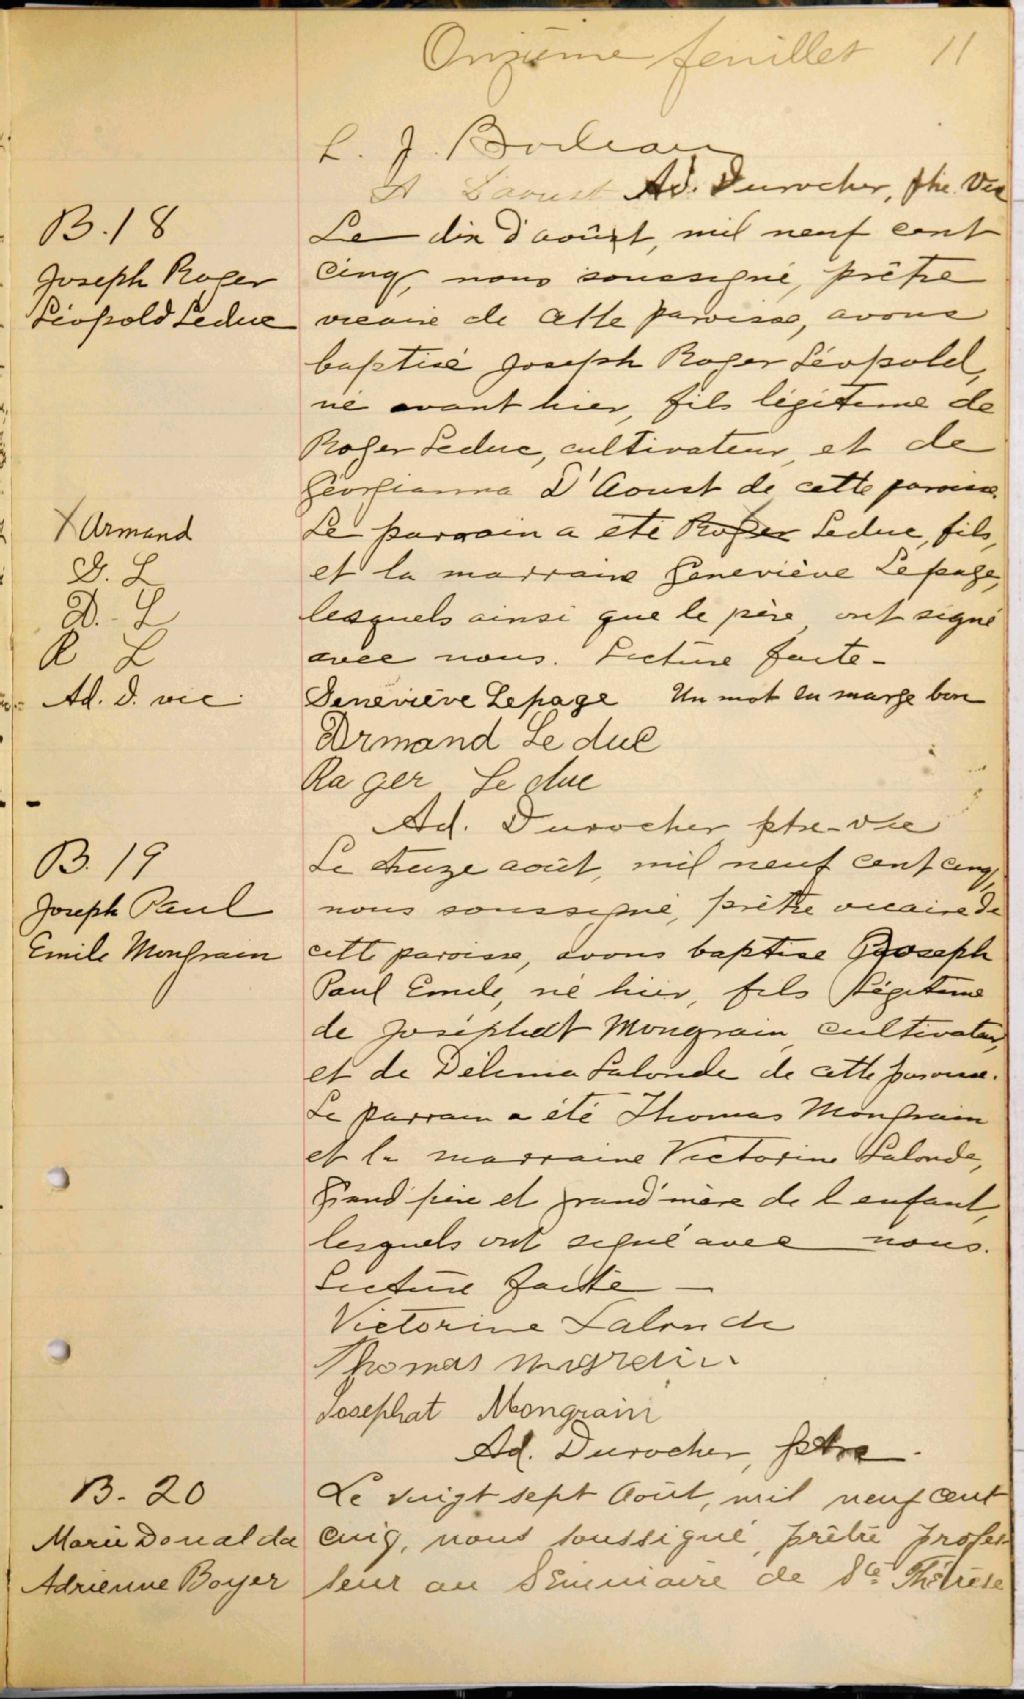 Onzième feuillet 11
L. J. Boileau
Daoust Ad. Durocher, ptre Vic
B. 18
Joseph Roger
Léopold Leduc
Le dix d'août, mil neuf cent
cinq, nous soussigné, prêtre
vicaire de cette paroisse, avons
baptisé Joseph Roger Léopold,
né avant hier, fils légitime de
Roger Leduc, cultivateur, et de
Géorgianna D'Aoust de cette paroisse.
X Armand
G. L
D. L
R L
Ad. D. vic.
Le parrain a été Roger Leduc, fils,
et la marraine Geneviève Lepage,
lesquels ainsi que le père, ont signé
avec nous. Lecture faite -
Geneviève Lepage Un mot en marge bon
Armand Leduc
Roger Leduc
Ad. Durocher ptre-vic
B. 19
Joseph Paul
Emile Mongrain
Le treize août, mil neuf cent cinq,
nous soussigné, prêtre vicaire de
cette paroisse, avons baptisé Joseph
Paul Emile, né hier, fils légitime
de Joséphat Mongrain, cultivateur,
et de Délima Lalonde de cette paroisse.
Le parrain a été Thomas Mongrain
et la marraine Victorine Lalonde,
grand'père et grand'mère de l'enfant,
lesquels ont signé avec nous.
Lecture faite —
Victorine Lalonde
Thomas Mongrain
Josephat Mongrain
Ad. Durocher, ptre
B. 20
Marie Donalda
Adrienne Boyer
Le vingt sept Août, mil neuf cent
cinq, nous soussigné, prêtre profes-
seur au Séminaire de Ste Thérèse